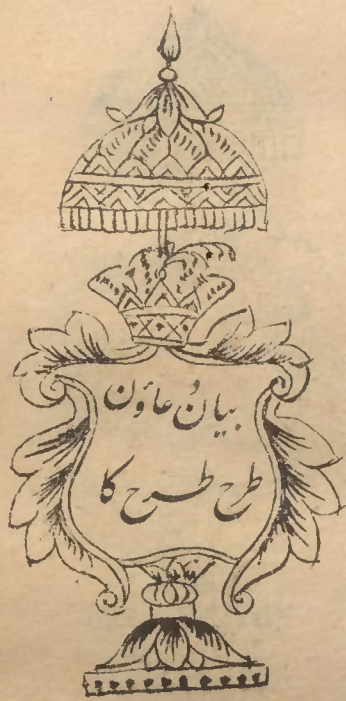 بیان دُعاؤن
طرح طرح کا